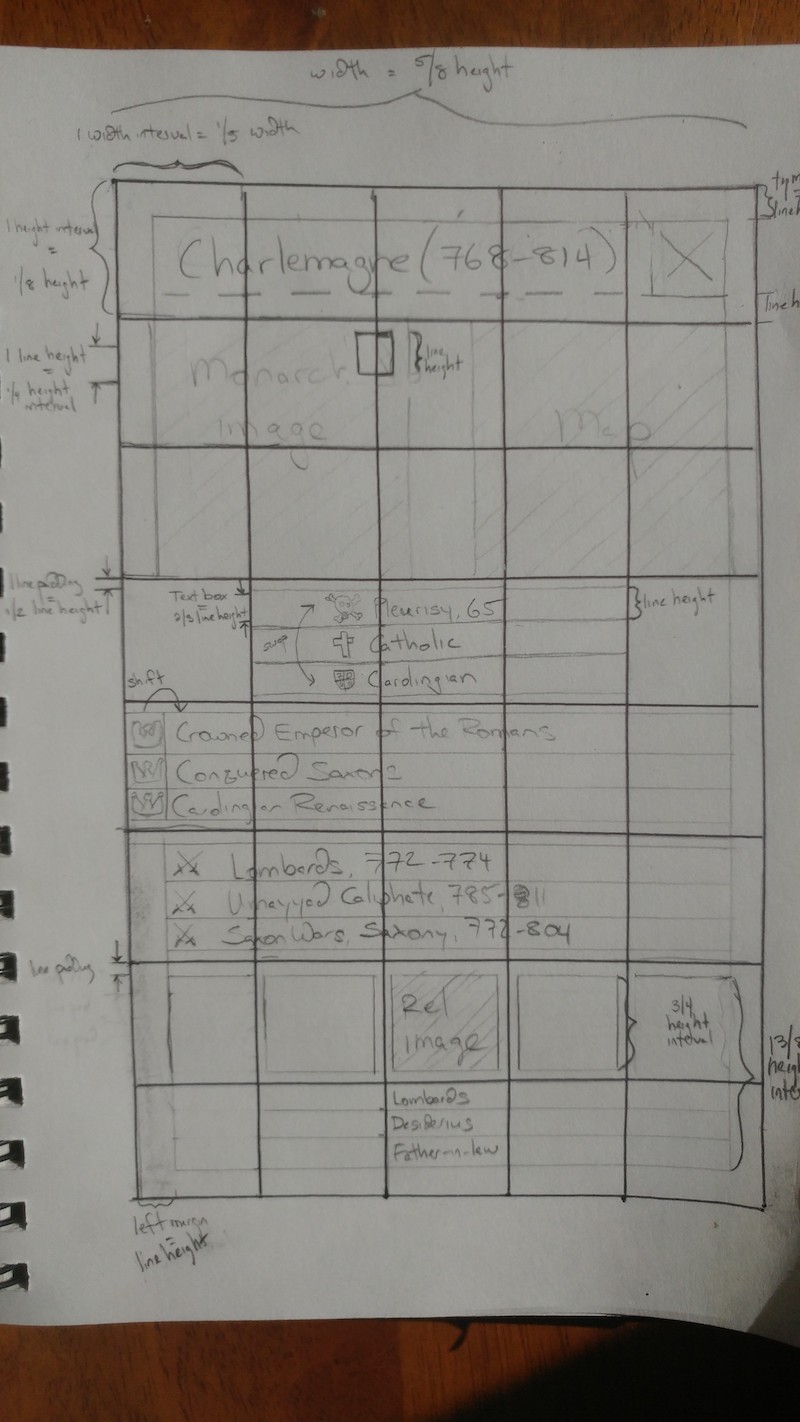 width = 5/8 height
1 width interval = 1/5 width
1 height interval
=
1/8 height
Charlemagne (768-814)
line h
1 line height
=
1/4 height
interval
line
height
Monarch
Image
Map
1 line padding
=
line height
Text box
=
2/3 line height
Pleurisy, 65
line height
Catholic
Carolingian
shift
Crowned Emperor of the Romans
Conquered Saxons
Carolingian Renaissence
Lombards, 772-774
Umayyad Caliphate, 785-811
Saxon Wars, Saxony, 772-804
line padding
Rel
image
3/4
height
interval
13/8
heig
inte
Lombards
Desiderius
Father-in-law
left margin
=
line height